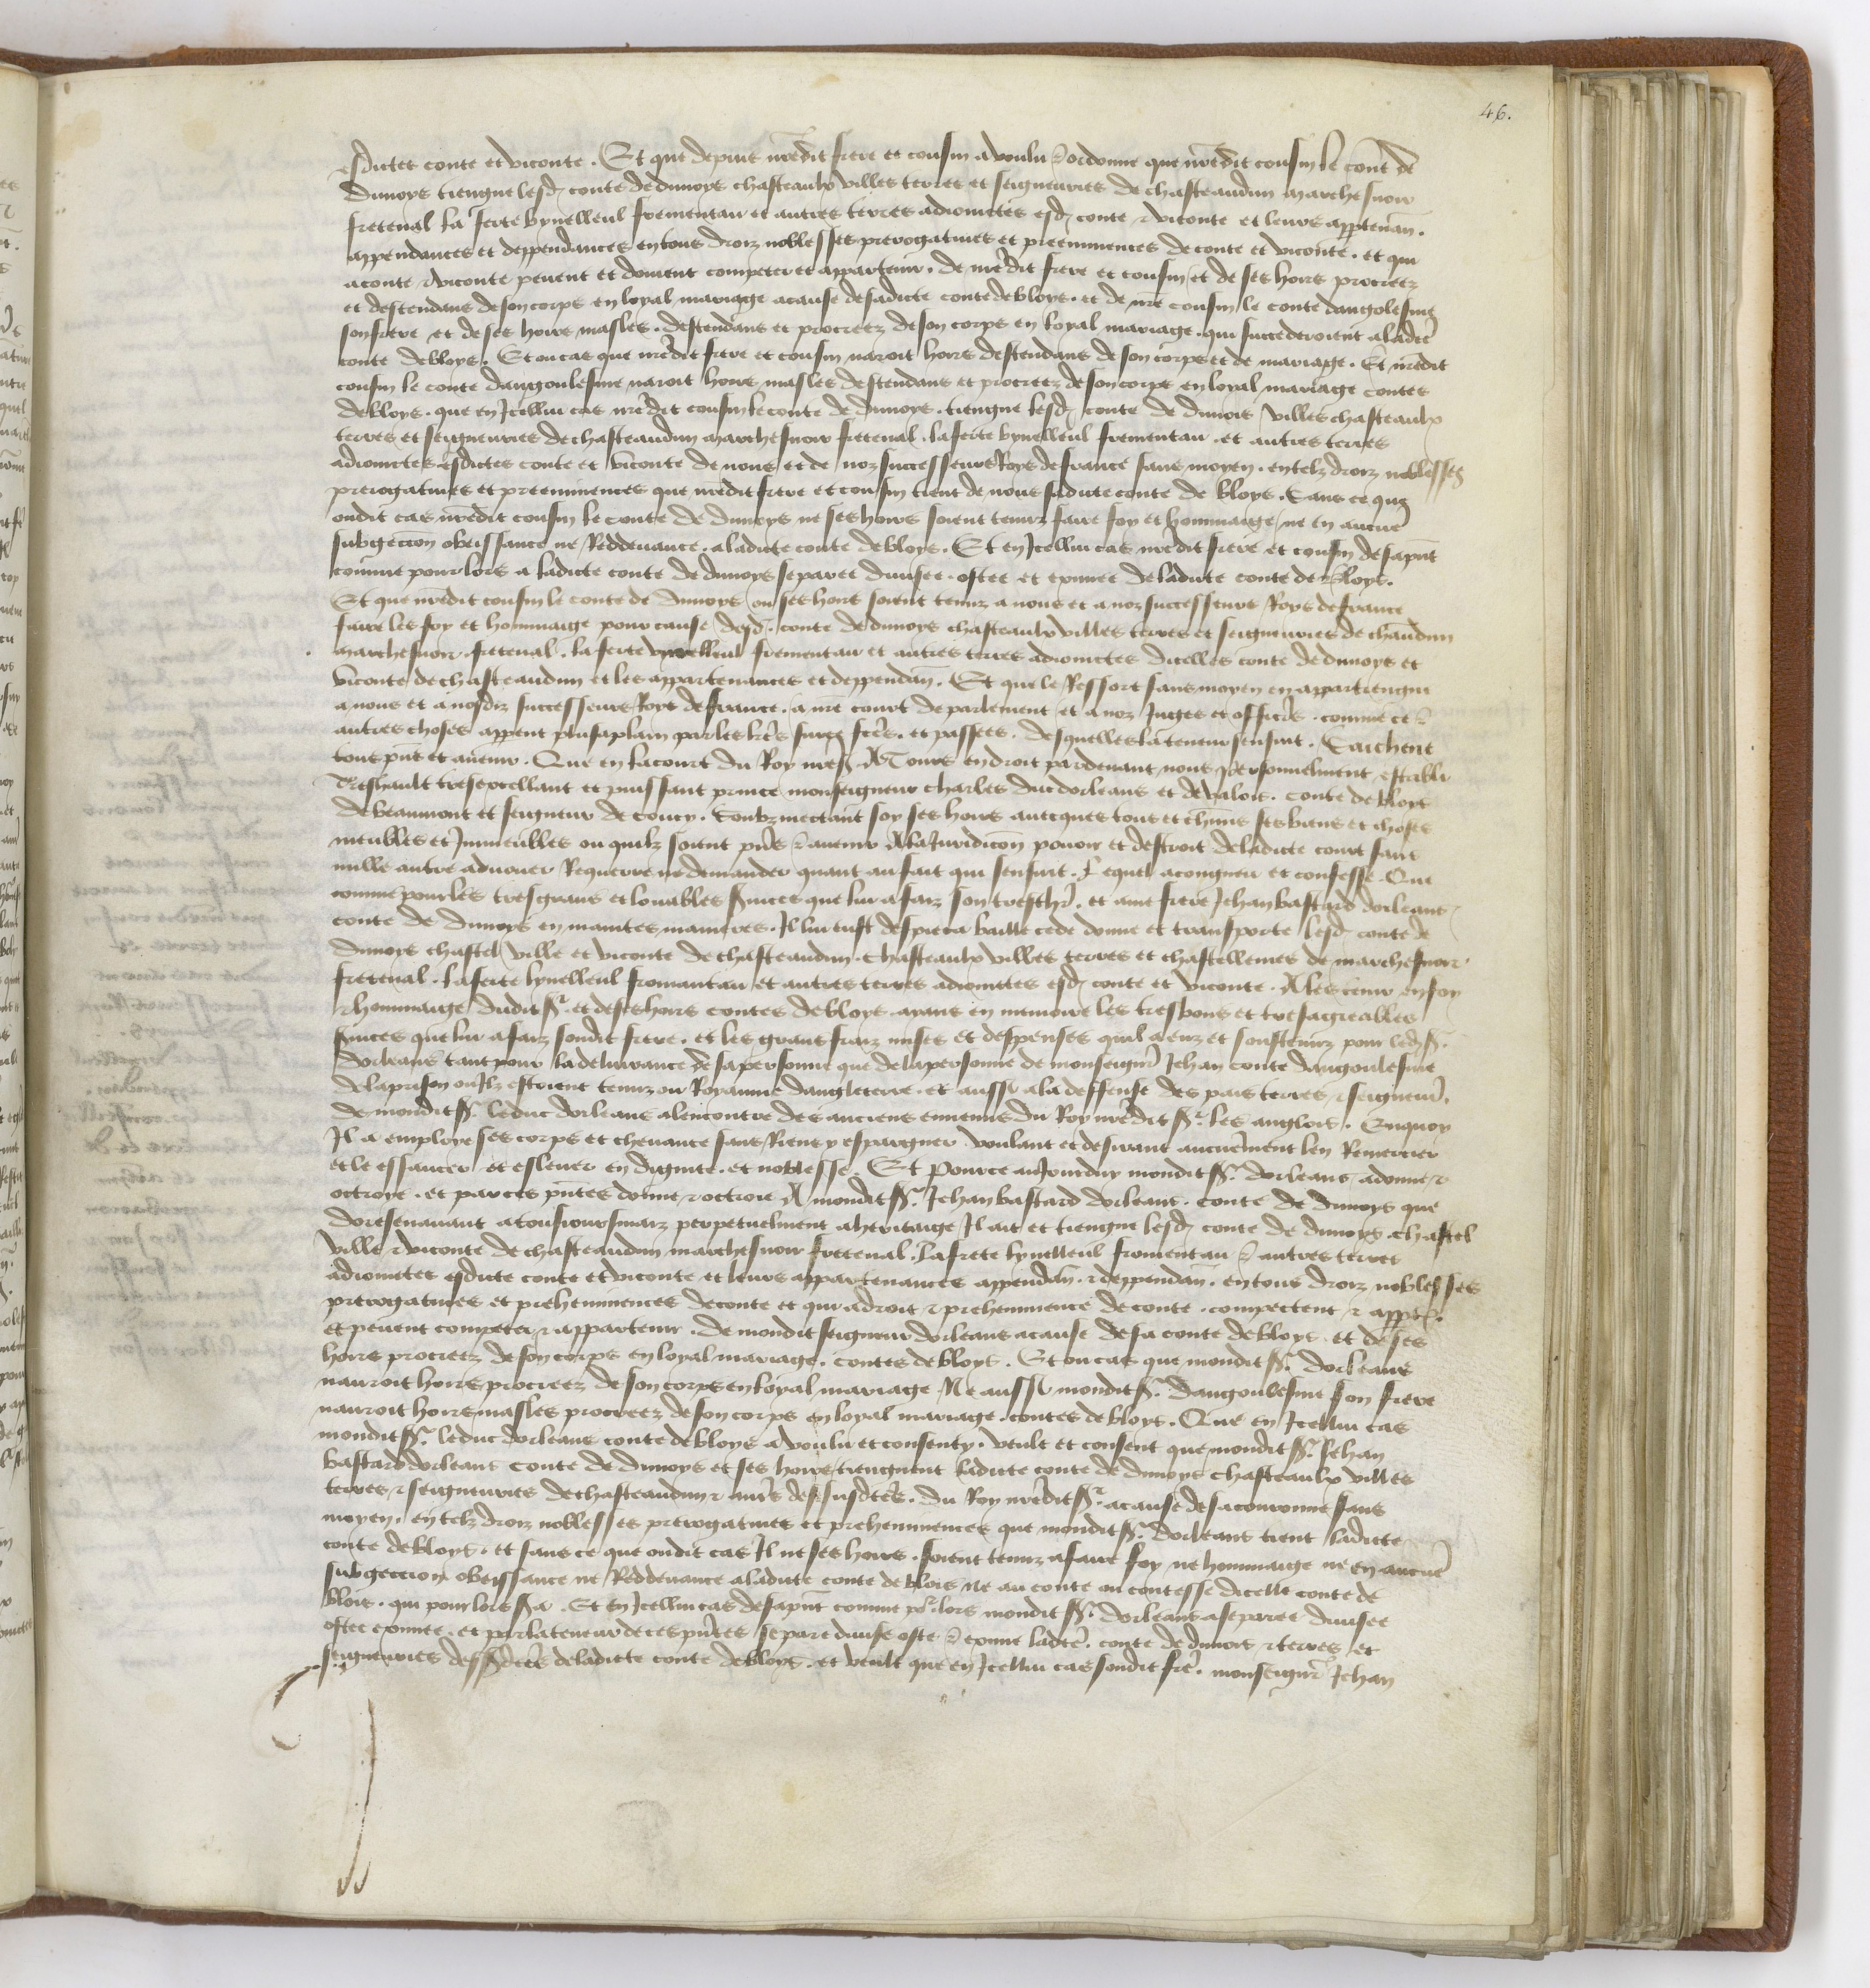 46.
esdictes conte et viconte . Et que depuis nredit frere et cousin a voulu & ordonne que nredit cousin le conte de
dunoys tiengne lesd conte de dunoys chasteaulx villes terres et seigneuries de chasteaudun marchesnoir
fretenal la ferte vynelleul fromentau et autres terres adioinctes esd conte & viconte et leurs apptenan .
appendances et deppendances en tous droiz noblesses prerogatives et preeminences de conte et viconte . et qui
a conte & viconte pevent et doivent competer et appartenir . de nredit frere et cousin et de ses hoirs procreez
et descendans de son corps en loyal mariage a cause de sadicte conte de bloys . et de nre cousin le conte dangolesme
son frere et de ses hoirs masles . descendans et procreez de son corps en loyal mariage . qui succederoient a ladicte
conte de bloys . Et ou cas que nredit frere et cousin naroit hoirs descendans de son corps et de mariage . Et nredit
cousin le conte dangoulesme naroit hoirs masles descendans et procreez de son corps en loyal mariage contes
de bloys . que en Icellui cas nredit cousin le conte de dunoys . tiengne lesd conte de dunois villes chasteaulx
terres et seigneuries de chasteaudun marchesnoir fretenal . la ferte vynelleul fromentau . et autres terres
adioinctes esdictes conte et viconte de nous et de noz successeurs Roys de france sans moyen . en telz droiz noblesses
prerogatives et preeminences que nredit frere et cousin tient de nous sadicte conte de bloys . Sans ce que
oudit cas nredit cousin le conte de dunoys ne ses hoirs soient tenuz faire foy et hommaige ne en aucune
subgection obeissance ne Reddevance . a ladicte conte de bloys . Et en Icellui cas nredit frere et cousin des a pnt
comme pour lors a ladicte conte de dunoys separee divisee . ostee et exmee de ladicte conte de bloys .
Et que nredit cousin le conte de dunoys ou ses hoirs soient tenuz a nous et a noz successeurs Roys de france
faire les foy et hommaige pour cause desd . conte de dunoys chasteaulx villes terres et seigneuries de chaudun
marchesnoir . fretenal . la ferte vynelleul fromentau et autres terres adioinctes dicelles conte de dunoys et
viconte de chasteaudun et les appartenances et deppendan . Et que le Ressort sans moyen en appartiengne
a nous et a nosdiz successeurs Roys de france . a nre court de parlement et a noz Juges et officiers . comme ce &
autres choses appent plus a plain par les lres sur ce fctes . et passees . desquelles la teneur sensuit . Saichent
tous pns et avenir . Que en la court du Roy nres A Tours en droit par devant nous personnelment establi
Treshault tresexcellant et puissant prince monseigneur charles duc dorleans et de valois . conte de bloys
de beaumont et seigneur de coucy . soubzmectant soy ses hoirs avecques tous et chuns ses biens et choses
meubles et Immeubles ou quilz soient pns & avenir A la Juridicon povoir et destroit de ladicte court sans
nulle autre advouer Requerre ne demander quant au fait qui sensuit . Lequel a congneu et confesse . Que
comme pour les tresgrans et louables svices que lui a faiz son treschr . et ame frere Jehan bastard dorleans
conte de dunoys en maintes manieres . Il lui eust des pieca baille cede donne et transporte lesd conte de
dunoys chastel ville et viconte de chasteaudun . chasteaulx villes terres et chastellenies de marchesnoir
fretenal . la ferte vynelleul fromantau et autres terres adioinctes esd conte et viconte . A les tenir en foy
& hommaige dudit s . et de ses hoirs contes de bloys . ayans en memoire les tresbons et tresagreables
svices que lui a faiz sondit frere . et les grans fraiz mises et despenses quil a euz et soustenuz pour led s .
dorleans tant pour la delivrance de sa personne que de la personne de monseignr Jehan conte dangoulesme
de la prison ou Ilz estoient tenuz ou Royaume dangleterre . et aussi a la deffense des pais terres & seigneur .
de mondit s . le duc dorleans a lencontre des anciens ennemis du Roy nredit s . les anglois . Enquoy
Il a employe ses corps et chevance sans Riens y espargner voulant et desirant aucunement len Remercier
et le essaucer . et eslever en dignite . et noblesse . Et Pource au Jourduy mondit s . dorleans a donne &
octroye . et par ces pntes donne & octroie A mondit s . Jehan bastard dorleans . conte de dunoys que
doresenavant a tousioursmaiz perpetuelment a heritaige Il ait et tiengne lesd conte de dunoys . chastel
ville & viconte de chasteaudun marchesnoir fretenal . la frete vynelleul fromentau & autres terres
adioinctes esdicte conte et viconte et leurs appartenances appendan . & deppendan . en tous droiz noblesses
prerogatives et preheminences de conte et qui a droit & preheminence de conte . compectent & apptien .
et pevent competer & appartenir . de mondit seigneur dorleans a cause de sa conte de bloys . et de ses
hoirs procreez de son corps en loyal mariage . contes de bloys . Et ou cas que mondit s . dorleans
nauroit hoirs procreez de son corps en loyal mariage Ne aussi mondit s . dangoulesme son frere
nauroit hoirs masles procreez de son corps en loyal mariage . contes de bloys . Que en Icellui cas
mondit s . le duc dorleans conte de bloys a voulu et consenty . veult et consent que mondit s . Jehan
bastard dorleans conte de dunoys et ses hoirs tiengnent ladicte conte de dunoys chasteaulx villes
terres & seigneuries de chasteaudun & aures dessusdctes . du Roy nredit s . a cause de sa couronne sans
moyen . en telz droiz noblesses prerogatives et preheminences que mondit s . dorleans tient ladicte
conte de bloys . et sans ce que oudit cas Il ne ses hoirs . soient tenuz a faire foy ne hommaige ne en aucune
subgection obeissance ne Reddevance a ladicte conte de blois ne au conte ou contesse dicelle conte de
blois . qui pour lors sera . Et en Icellui cas des a pnt comme pr . lors mondit s . dorleans a separee divisee
ostee exmtee . et par la teneur de ces pntes separe divise oste & exmte ladcte . conte de dunois & terres et
seigneuries dessdctes de ladicte conte de bloys . et veult que en Icellui cas sondit fre . monseignr Jehan